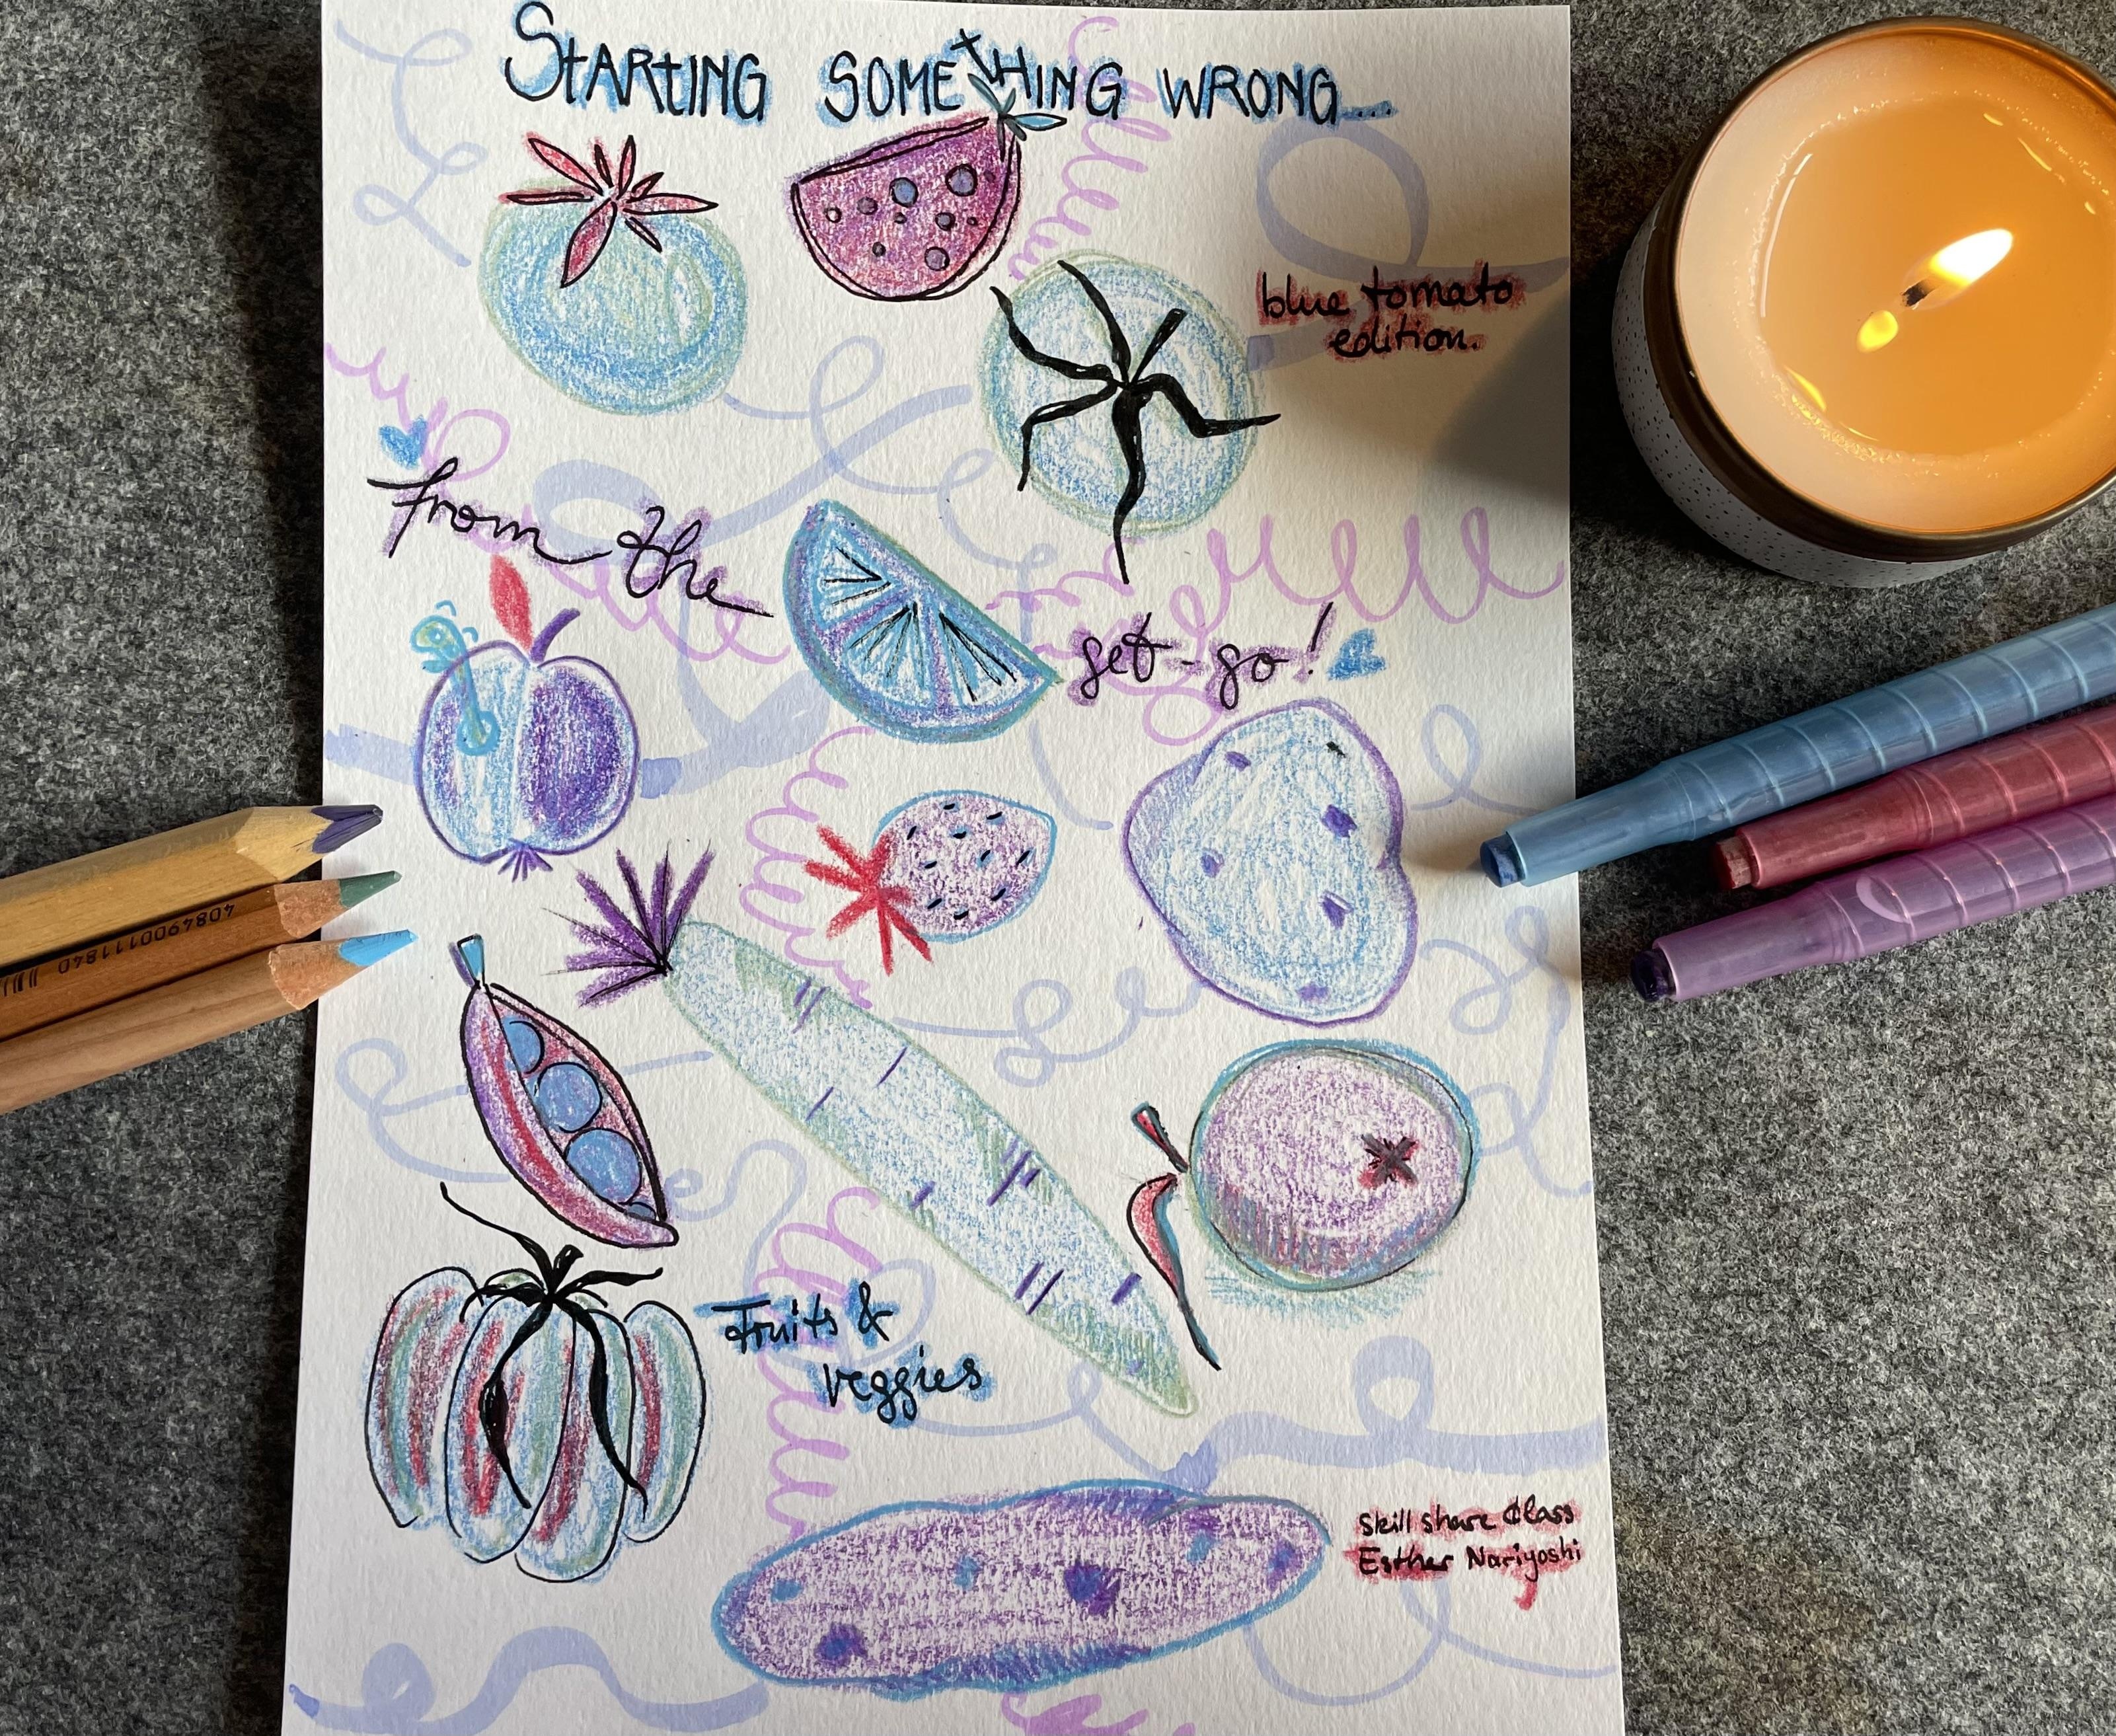 STARTING SOMETHING WRONG...
blue tomato
edition.
from the
get-go!
Fruits &
veggies
skill share Class
Esther Nariyoshi
4084900111840